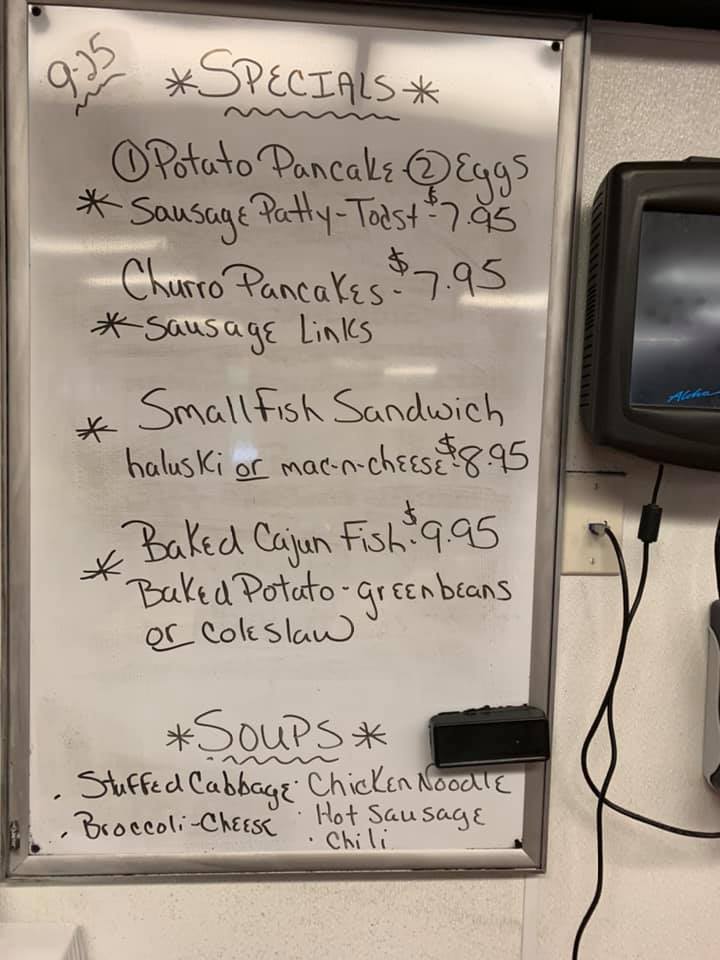 9-25
*SPECIALS*
①Potato Pancake-②Eggs
*Sausage Patty-Toast-$7.95
Churro Pancakes-$7.95
*Sausage Links
* Small Fish Sandwich
haluski or mac-n-cheese-$8.95
* Baked Cajun Fish-$9.95
Baked Potato-greenbeans
or coleslaw
*SOUPS*
. Stuffed Cabbage · Chicken Noodle
. Broccoli-Cheese · Hot Sausage
· Chili
Aloha